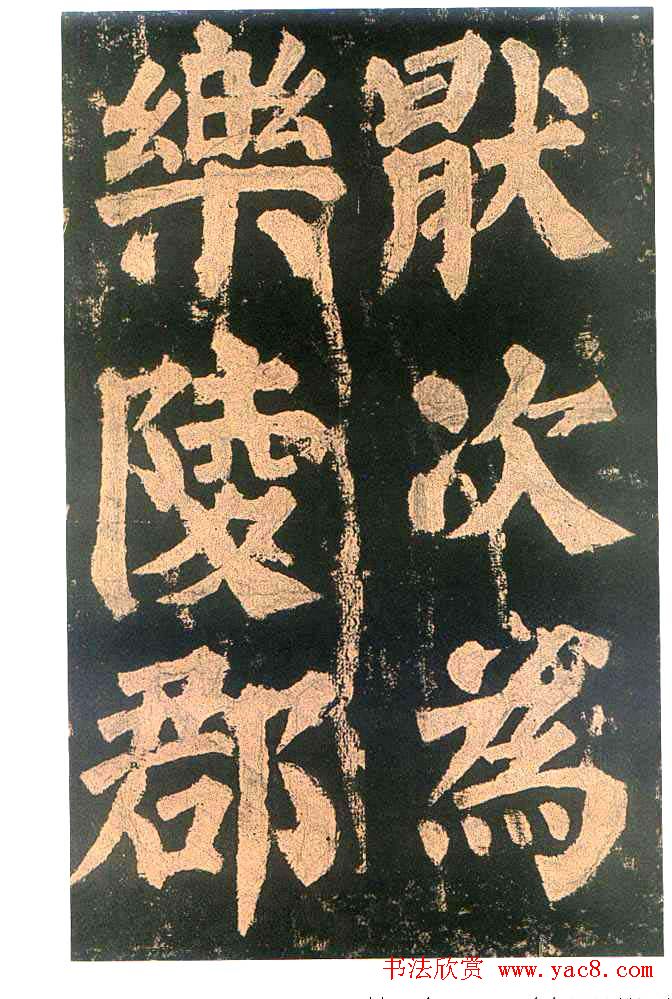 猒次為
樂陵郡
书法欣赏 www.yac8.com